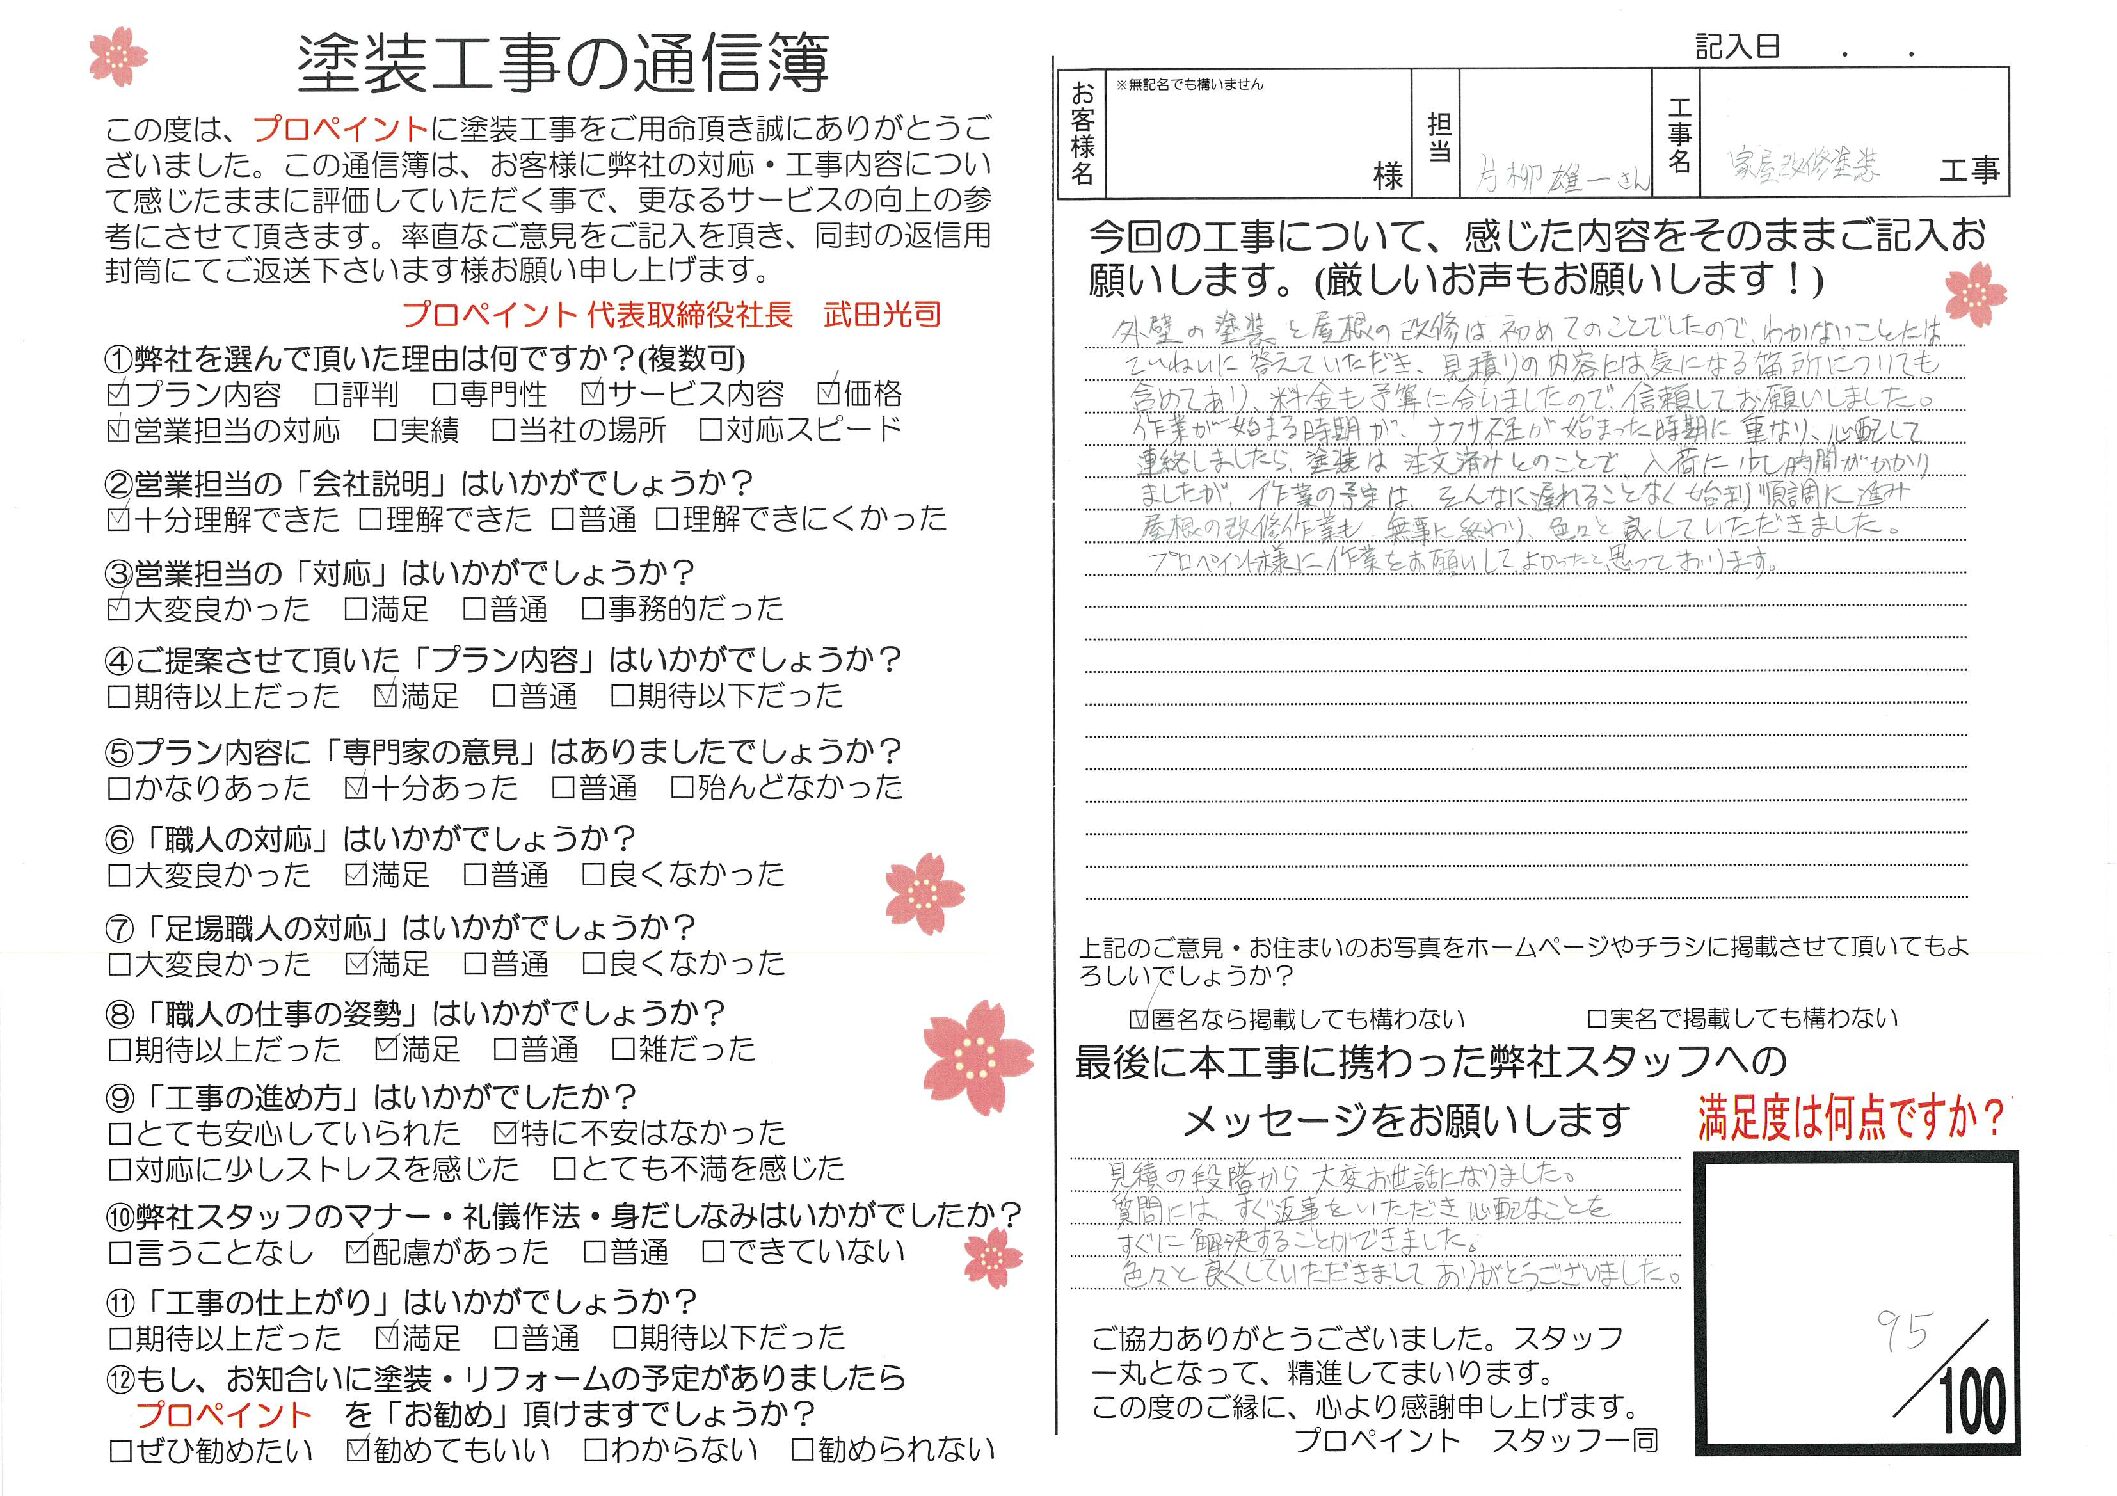 塗装工事の通信簿
この度は、プロペイントに塗装工事をご用命頂き誠にありがとうご
ざいました。この通信簿は、お客様に弊社の対応・工事内容につい
て感じたままに評価していただく事で、更なるサービスの向上の参
考にさせて頂きます。率直なご意見をご記入を頂き、同封の返信用
封筒にてご返送下さいます様お願い申し上げます。
プロペイント 代表取締役社長　武田光司
①弊社を選んで頂いた理由は何ですか？(複数可)
☑プラン内容　□評判　□専門性　☑サービス内容　☑価格
☑営業担当の対応　□実績　□当社の場所　□対応スピード
②営業担当の「会社説明」はいかがでしょうか？
☑十分理解できた □理解できた □普通 □理解できにくかった
③営業担当の「対応」はいかがでしょうか？
☑大変良かった　□満足　□普通　□事務的だった
④ご提案させて頂いた「プラン内容」はいかがでしょうか？
□期待以上だった　☑満足　□普通　□期待以下だった
⑤プラン内容に「専門家の意見」はありましたでしょうか？
□かなりあった　☑十分あった　□普通　□殆んどなかった
⑥「職人の対応」はいかがでしょうか？
□大変良かった　☑満足　□普通　□良くなかった
⑦「足場職人の対応」はいかがでしょうか？
□大変良かった　☑満足　□普通　□良くなかった
⑧「職人の仕事の姿勢」はいかがでしょうか？
□期待以上だった　☑満足　□普通　□雑だった
⑨「工事の進め方」はいかがでしたか？
□とても安心していられた　☑特に不安はなかった
□対応に少しストレスを感じた　□とても不満を感じた
⑩弊社スタッフのマナー・礼儀作法・身だしなみはいかがでしたか？
□言うことなし　☑配慮があった　□普通　□できていない
⑪「工事の仕上がり」はいかがでしょうか？
□期待以上だった　☑満足　□普通　□期待以下だった
⑫もし、お知合いに塗装・リフォームの予定がありましたら
プロペイント　を「お勧め」頂けますでしょうか？
□ぜひ勧めたい　☑勧めてもいい　□わからない　□勧められない
記入日　　．　　．
お客様名　※無記名でも構いません　様　担当　片柳雄一さん　工事名　家屋改修塗装　工事
今回の工事について、感じた内容をそのままご記入お
願いします。(厳しいお声もお願いします！)
外壁の塗装と屋根の改修は初めてのことでしたので、わかないことたは
ていねいに答えていただき、見積りの内容には気になる箇所についても
含めてあり、料金も予算に合いましたので、信頼してお願いしました。
作業が始まる時期が、ナフサ不足が始まった時期に重なり、心配して
連絡しましたら、塗装は注文済みとのことで、入荷に少し時間がかかり
ましたが、作業の予定は、そんなに遅れることなく始まり順調に進み
屋根の改修作業も、無事に終わり、色々と良していただきました。
プロペイント様に作業をお願いして、よかったと思っております。
上記のご意見・お住まいのお写真をホームページやチラシに掲載させて頂いてもよ
ろしいでしょうか？
☑匿名なら掲載しても構わない　□実名で掲載しても構わない
最後に本工事に携わった弊社スタッフへの
メッセージをお願いします
見積の段階から大変お世話になりました。
質問には、すぐ返事をいただき心配なことを
すぐに解決することができました。
色々と良くしていただきましてありがとうございました。
満足度は何点ですか？
95/100
ご協力ありがとうございました。スタッフ
一丸となって、精進してまいります。
この度のご縁に、心より感謝申し上げます。
プロペイント　スタッフ一同